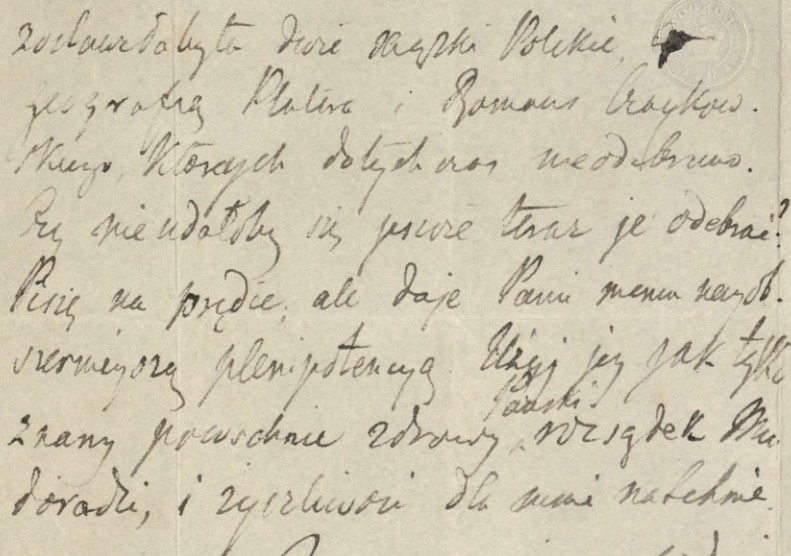 zostawiła była dwie książki Polskie,
geografią Platera i Romans Czaykow-
skiego, których dotychczas nieodebrano.
Czy nieudałoby się jeszcze teraz je odebrać?
Piszę na prędce, ale daję Panu memu nayob-
szernieyszą plenipotencyą. Użyj jey jak tylko
znany powszechnie zdrowy Pański rozsądek Mu
doradzi, i życzliwość dla mnie natchnie.